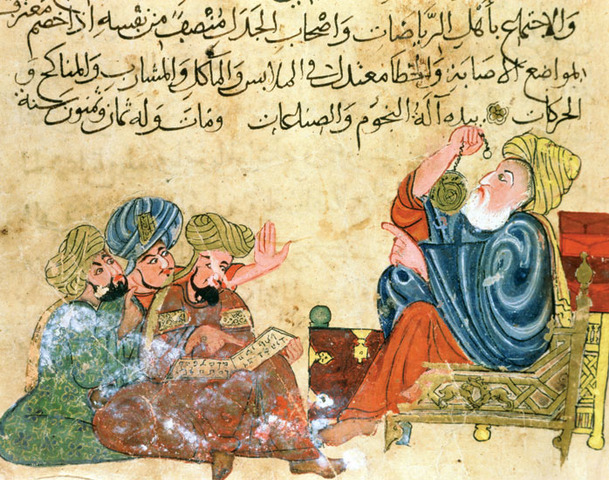 والاجتماع بأهل الرياضات واصحاب الجدل منتصف من نفسه اذا خصم معترف
المواضع الاصابة والخطا معتدل في الملابس والمآكل والمشارب والمناكح و
الحركات بيده آلة النجوم والصناعات ومات وله ثمان وثمنون سنة